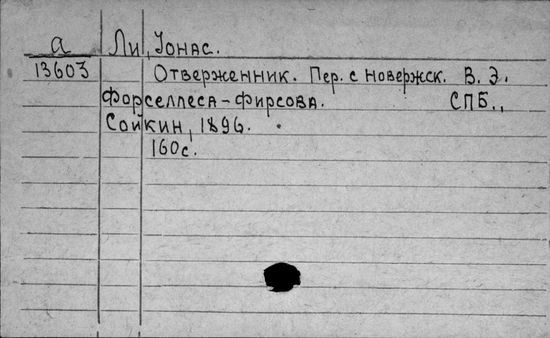 а Ли, Іонас.
13603 Отверженник. Пер. с новержск. В. Э.
Форселлеса-Фирсова. СПБ.,
Сойкин, 1896.
160с.